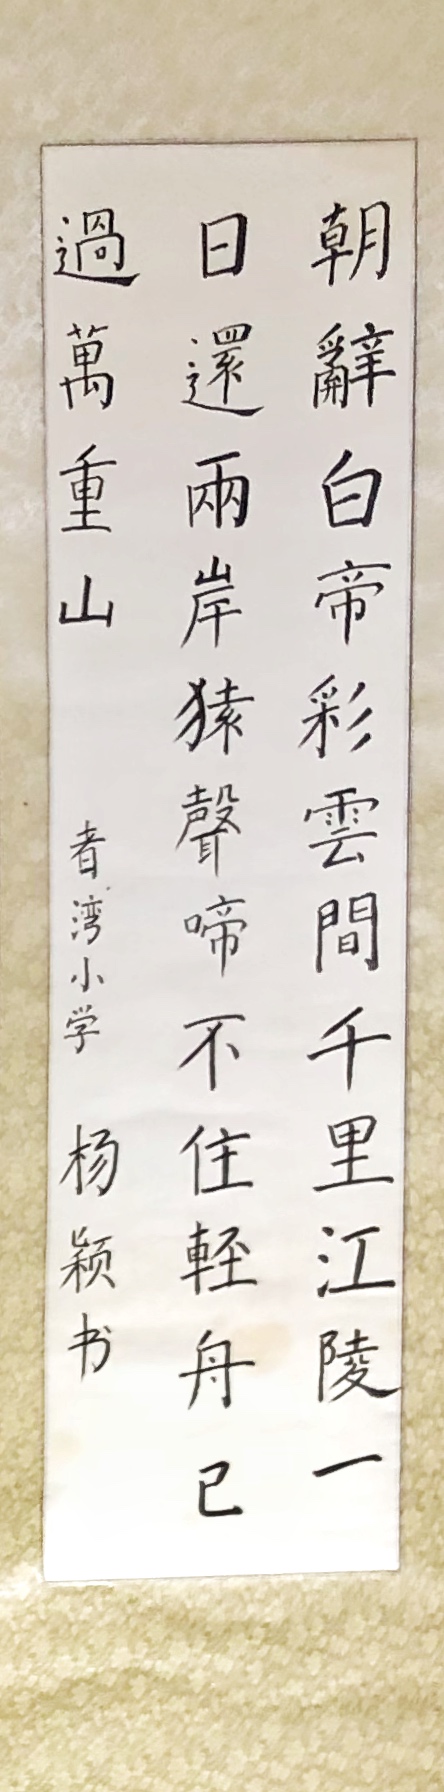 朝辭白帝彩雲間千里江陵一
日還兩岸猿聲啼不住軽舟已
過萬重山
者湾小学 杨颖书